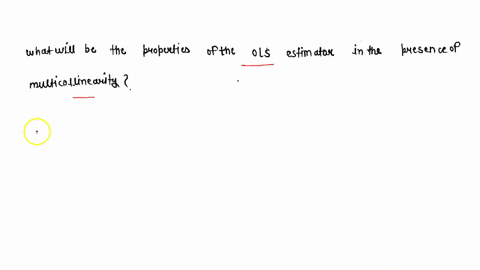 what will be the properties of the OLS estimator in the presence of
multicollinearity?